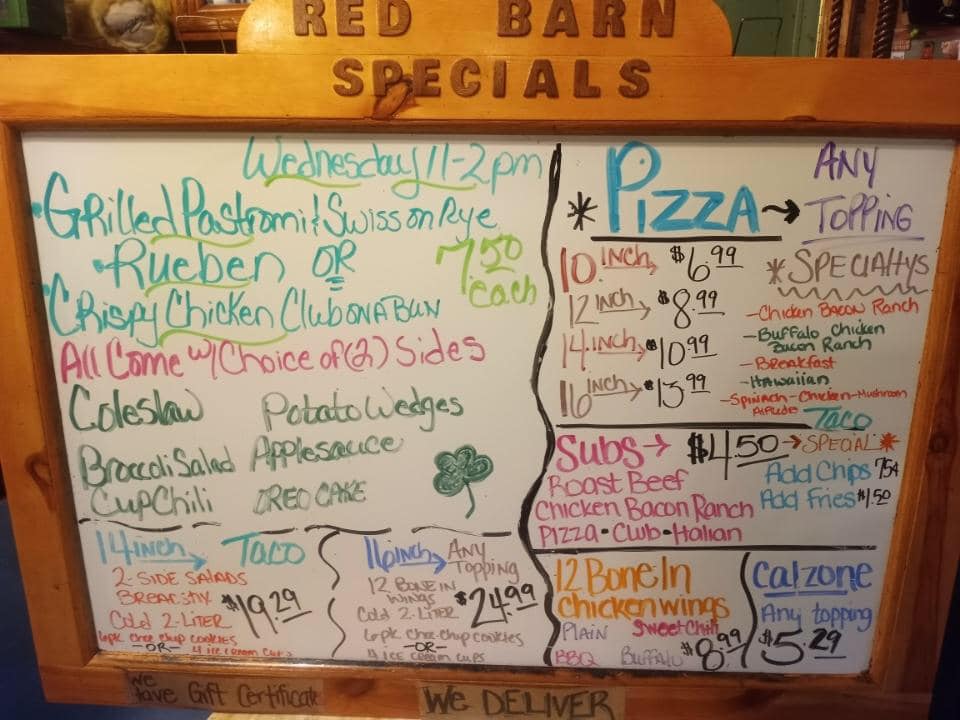 RED BARN
SPECIALS
Wednesday 11-2pm
• Grilled Pastromi & Swiss on Rye
• Rueben OR
7.50
each
• Crispy Chicken Club ON A BUN
All Come w/ Choice of (2) Sides
Coleslaw Potato Wedges
Broccoli Salad Applesauce
Cup Chili OREO CAKE
14 inch → TACO
2-SIDE SALADS
BREADSTIX
Cold 2-LITER
$19.29
6pk Choc Chip Cookies
-OR- 4 ICE CREAM CUPS
16 inch → ANY
TOPPING
12 BONE IN
WINGS
Cold 2-LITER
$24.99
6pk Choc chip cookies
-OR-
4 ICE CREAM CUPS
* PIZZA → ANY
TOPPING
10 INCH → $6.99
12 INCH → $8.99
14 INCH → $10.99
16 INCH → $13.99
* SPECIALTYS
- Chicken BACON RANCH
- Buffalo Chicken
Bacon Ranch
- BREAKFAST
- HAWAIIAN
- SPINACH-CHICKEN-MUSHROOM
TACO
SUBS → $4.50 → SPECIAL *
Roast Beef
Chicken Bacon Ranch
Pizza • Club • Italian
Add Chips 75¢
Add Fries $1.50
12 Bone In
chicken wings
PLAIN Sweet Chili
BBQ Buffalo $8.99
Calzone
Any topping
$5.29
We
have Gift Certificate
WE DELIVER